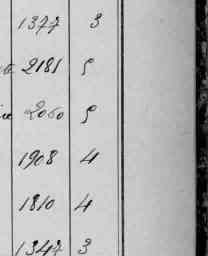 1377 3
2181 5
2060 5
1908 4
1810 4
1347 3